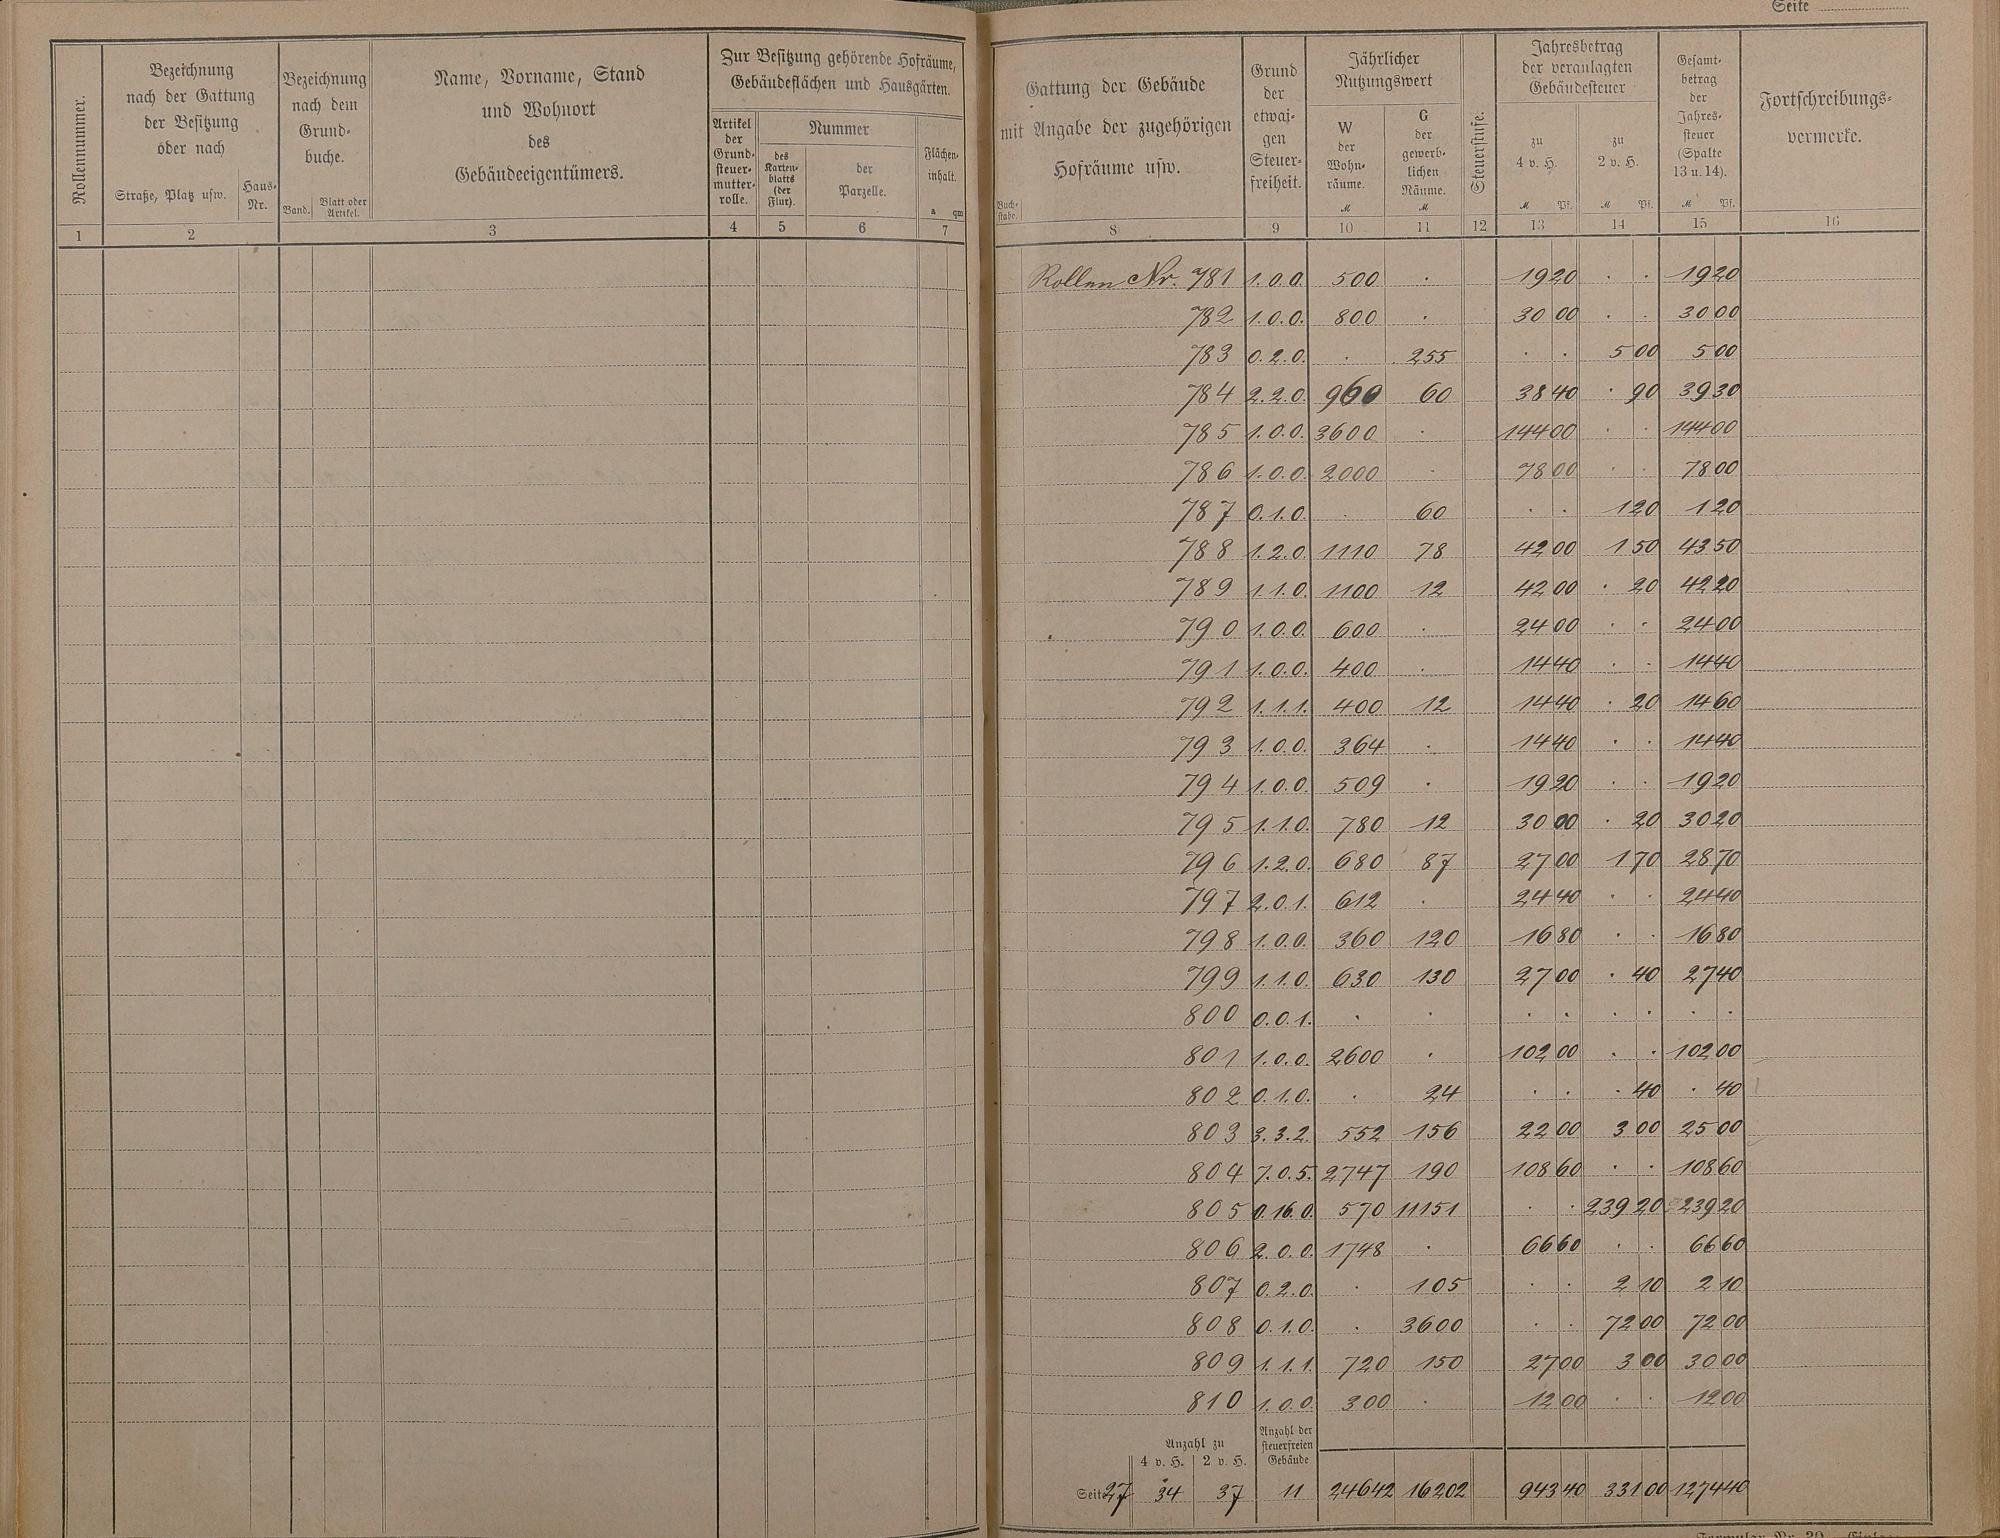 Seite
Rollennummer.
Bezeichnung
nach der Gattung
der Besitzung
oder nach
Straße, Platz usw.
Haus-
Nr.
Bezeichnung
nach dem
Grund-
buche.
Band.
Blatt oder
Artikel.
Name, Vorname, Stand
und Wohnort
des
Gebäudeeigentümers.
Zur Besitzung gehörende Hofräume,
Gebäudeflächen und Hausgärten.
Artikel
der
Grund-
steuer-
mutter-
rolle.
Nummer
des
Karten-
blatts
(der
Flur).
der
Parzelle.
Flächen-
inhalt.
a qm
1 2 3 4 5 6 7
Gattung der Gebäude
mit Angabe der zugehörigen
Hofräume usw.
Buch-
stabe.
Grund
der
etwai-
gen
Steuer-
freiheit.
Jährlicher
Nutzungswert
W
der
Wohn-
räume.
M
G
der
gewerb-
lichen
Räume.
M
Steuerstufe.
Jahresbetrag
der veranlagten
Gebäudesteuer
zu
4 v. H.
M Pf.
zu
2 v. H.
M Pf.
Gesamt-
betrag
der
Jahres-
steuer
(Spalte
13 u. 14).
M Pf.
Fortschreibungs-
vermerke.
8 9 10 11 12 13 14 15 16
Rollen Nr. 781 1.0.0. 500 . 19 20 . . 19 20
782 1.0.0. 800 . 30 00 . . 30 00
783 0.2.0. . 255 . . 5 00 5 00
784 2.2.0. 960 60 38 40 . 90 39 30
785 1.0.0. 3600 . 144 00 . . 144 00
786 1.0.0. 2000 . 78 00 . . 78 00
787 0.1.0. . 60 . . 1 20 1 20
788 1.2.0. 1110 78 42 00 1 50 43 50
789 1.1.0. 1100 12 42 00 . 20 42 20
790 1.0.0. 600 . 24 00 . . 24 00
791 1.0.0. 400 . 14 40 . . 14 40
792 1.1.1. 400 12 14 40 . 20 14 60
793 1.0.0. 364 . 14 40 . . 14 40
794 1.0.0. 509 . 19 20 . . 19 20
795 1.1.0. 780 12 30 00 . 20 30 20
796 1.2.0. 680 87 27 00 1 70 28 70
797 2.0.1. 612 . 24 40 . . 24 40
798 1.0.0. 360 120 16 80 . . 16 80
799 1.1.0. 630 130 27 00 . 40 27 40
800 0.0.1. . . . . . . . .
801 1.0.0. 2600 . 102 00 . . 102 00
802 0.1.0. . 24 . . . 40 . 40
803 3.3.2. 552 156 22 00 3 00 25 00
804 7.0.5. 2747 190 108 60 . . 108 60
805 0.16.0. 570 11151 . . 239 20 239 20
806 2.0.0. 1748 . 66 60 . . 66 60
807 0.2.0. . 105 . . 2 10 2 10
808 0.1.0. . 3600 . . 72 00 72 00
809 1.1.1. 720 150 27 00 3 00 30 00
810 1.0.0. 300 . 12 00 . . 12 00
Anzahl zu
4 v. H. 2 v. H.
Anzahl der
steuerfreien
Gebäude
Seite 27 34 37 11 24642 16202 943 40 331 00 1274 40